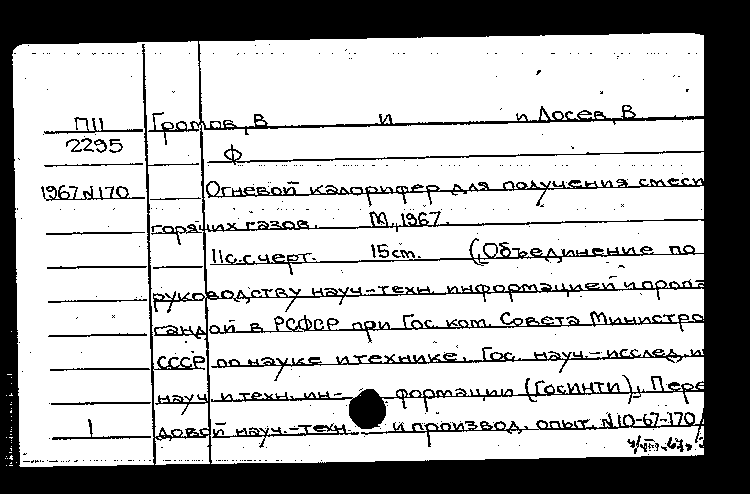 П11 Громов, В И и Лосев, В
2295 Ф
1967 N170 Огневой калорифер для получения смеси
горячих газов. М., 1967.
11 с. с черт. 15 см. (Объединение по
руководству науч.-техн. информацией и пропа
гандой в РСФСР при Гос. ком. Совета Министро
СССР по науке и технике. Гос. науч.-исслед. и
науч. и техн. ин- формации (ГОСИНТИ). Пере
1 довой науч.-техн. и производ. опыт. N10-67-170/